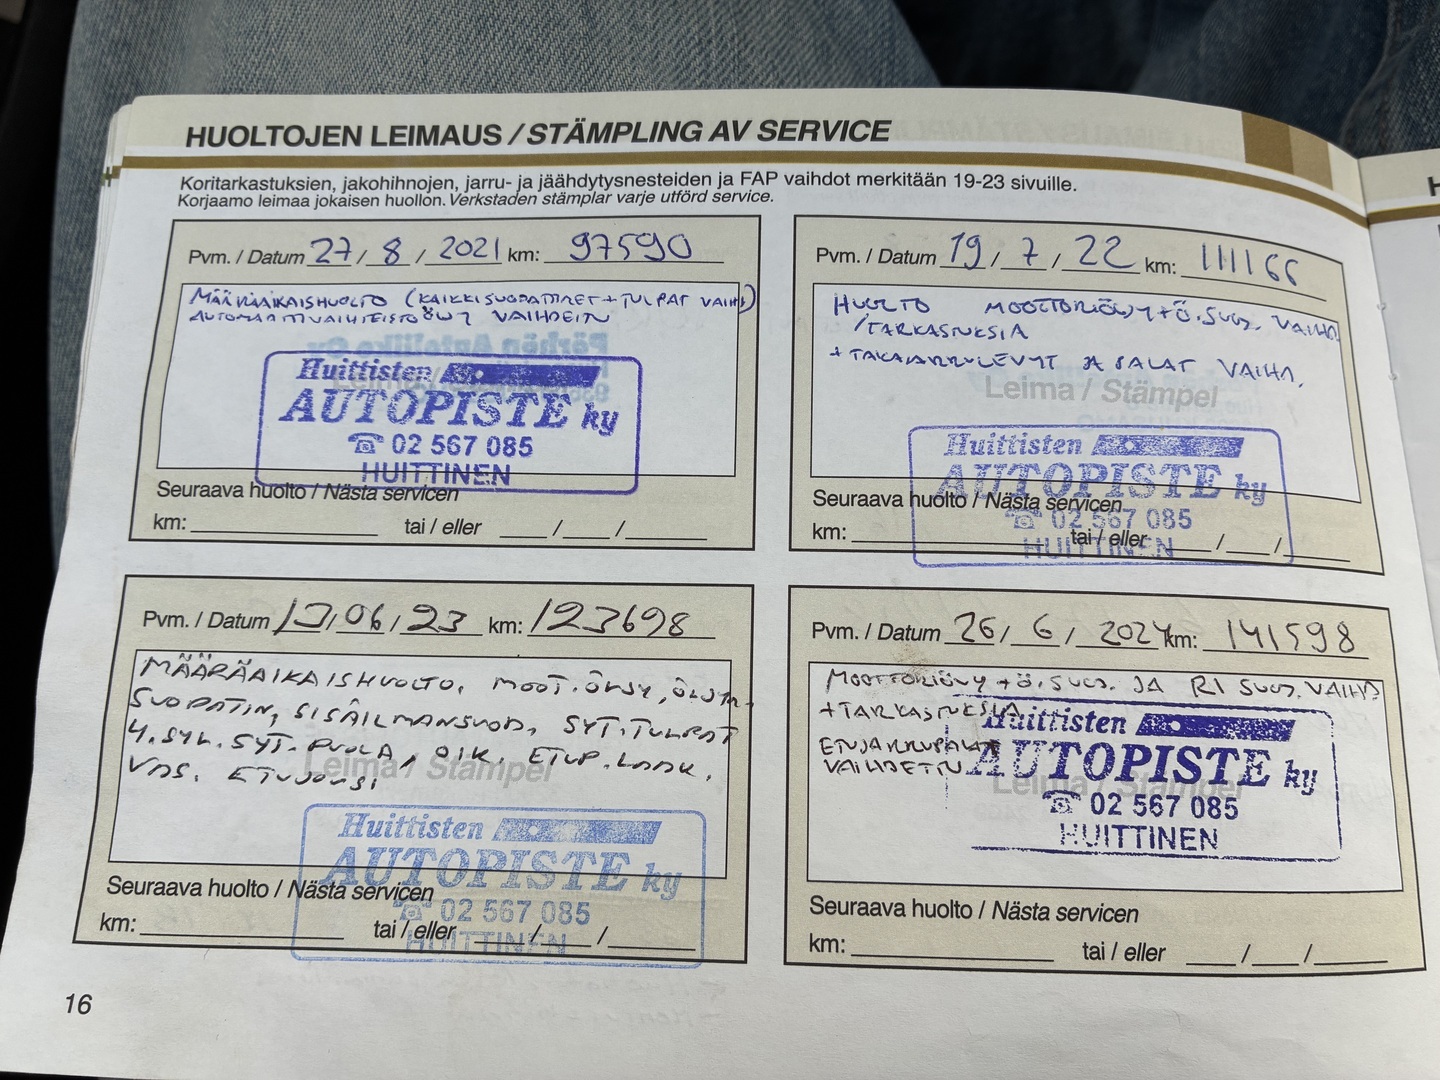 HUOLTOJEN LEIMAUS / STÄMPLING AV SERVICE
Koritarkastuksien, jakohihnojen, jarru- ja jäähdytysnesteiden ja FAP vaihdot merkitään 19-23 sivuille.
Korjaamo leimaa jokaisen huollon. Verkstaden stämplar varje utförd service.
Pvm. / Datum 27 / 8 / 2021 km: 97590
MÄÄRÄAIKAISHUOLTO (KAIKKI SUODATTIMET + TULPAT VAIHD)
AUTOMAATTIVAIHTEISTOÖLJY VAIHDETTU
Huittisten
AUTOPISTE ky
☎ 02 567 085
HUITTINEN
Seuraava huolto / Nästa servicen
km: tai / eller / /
Pvm. / Datum 19 / 7 / 22 km: 111166
HUOLTO MOOTTORIÖLJY + Ö.SUOD. VAIHD.
/TARKASTUKSIA
+ TAKAJARRULEVYT JA PALAT VAIHD.
Leima / Stämpel
Huittisten
AUTOPISTE ky
☎ 02 567 085
HUITTINEN
Seuraava huolto / Nästa servicen
km: tai / eller / /
Pvm. / Datum 13 / 06 / 23 km: 123698
MÄÄRÄAIKAISHUOLTO, MOOT.ÖLJY, ÖLJYN-
SUODATIN, SISÄILMANSUOD, SYT.TULPAT
4.SYL. SYT. PUOLA, OIK. ETUP. LAAK.
VAS. ETUJOUSI
Leima / Stämpel
Huittisten
AUTOPISTE ky
☎ 02 567 085
HUITTINEN
Seuraava huolto / Nästa servicen
km: tai / eller / /
Pvm. / Datum 26 / 6 / 2024 km: 141598
MOOTTORIÖLJY + Ö.SUOD. JA RI SUOD. VAIHD
+ TARKASTUKSIA
ETUJARRUPALAT
VAIHDETTU
Leima / Stämpel
Huittisten
AUTOPISTE ky
☎ 02 567 085
HUITTINEN
Seuraava huolto / Nästa servicen
km: tai / eller / /
16